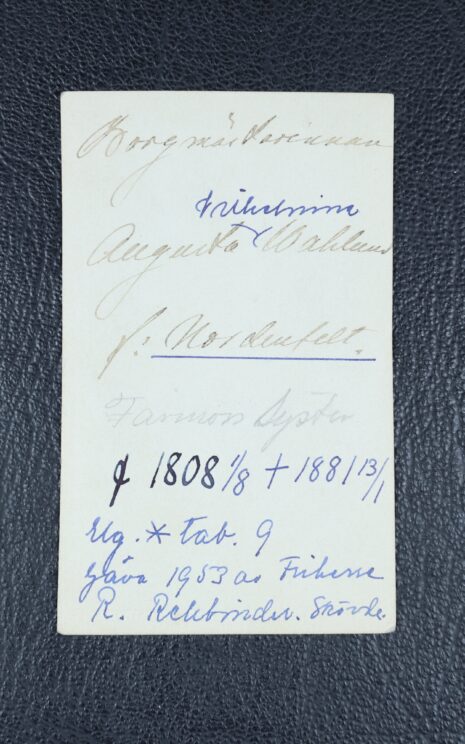 Borgmästarinnan
Wilhelmina
Augusta Wahlund
f: Nordenfelt.
Farmors Syster
1808 1/8 + 1881 13/1
Elg. * tab. 9
Gåva 1953 av Friherre
R. Rehbinder. Skövde.